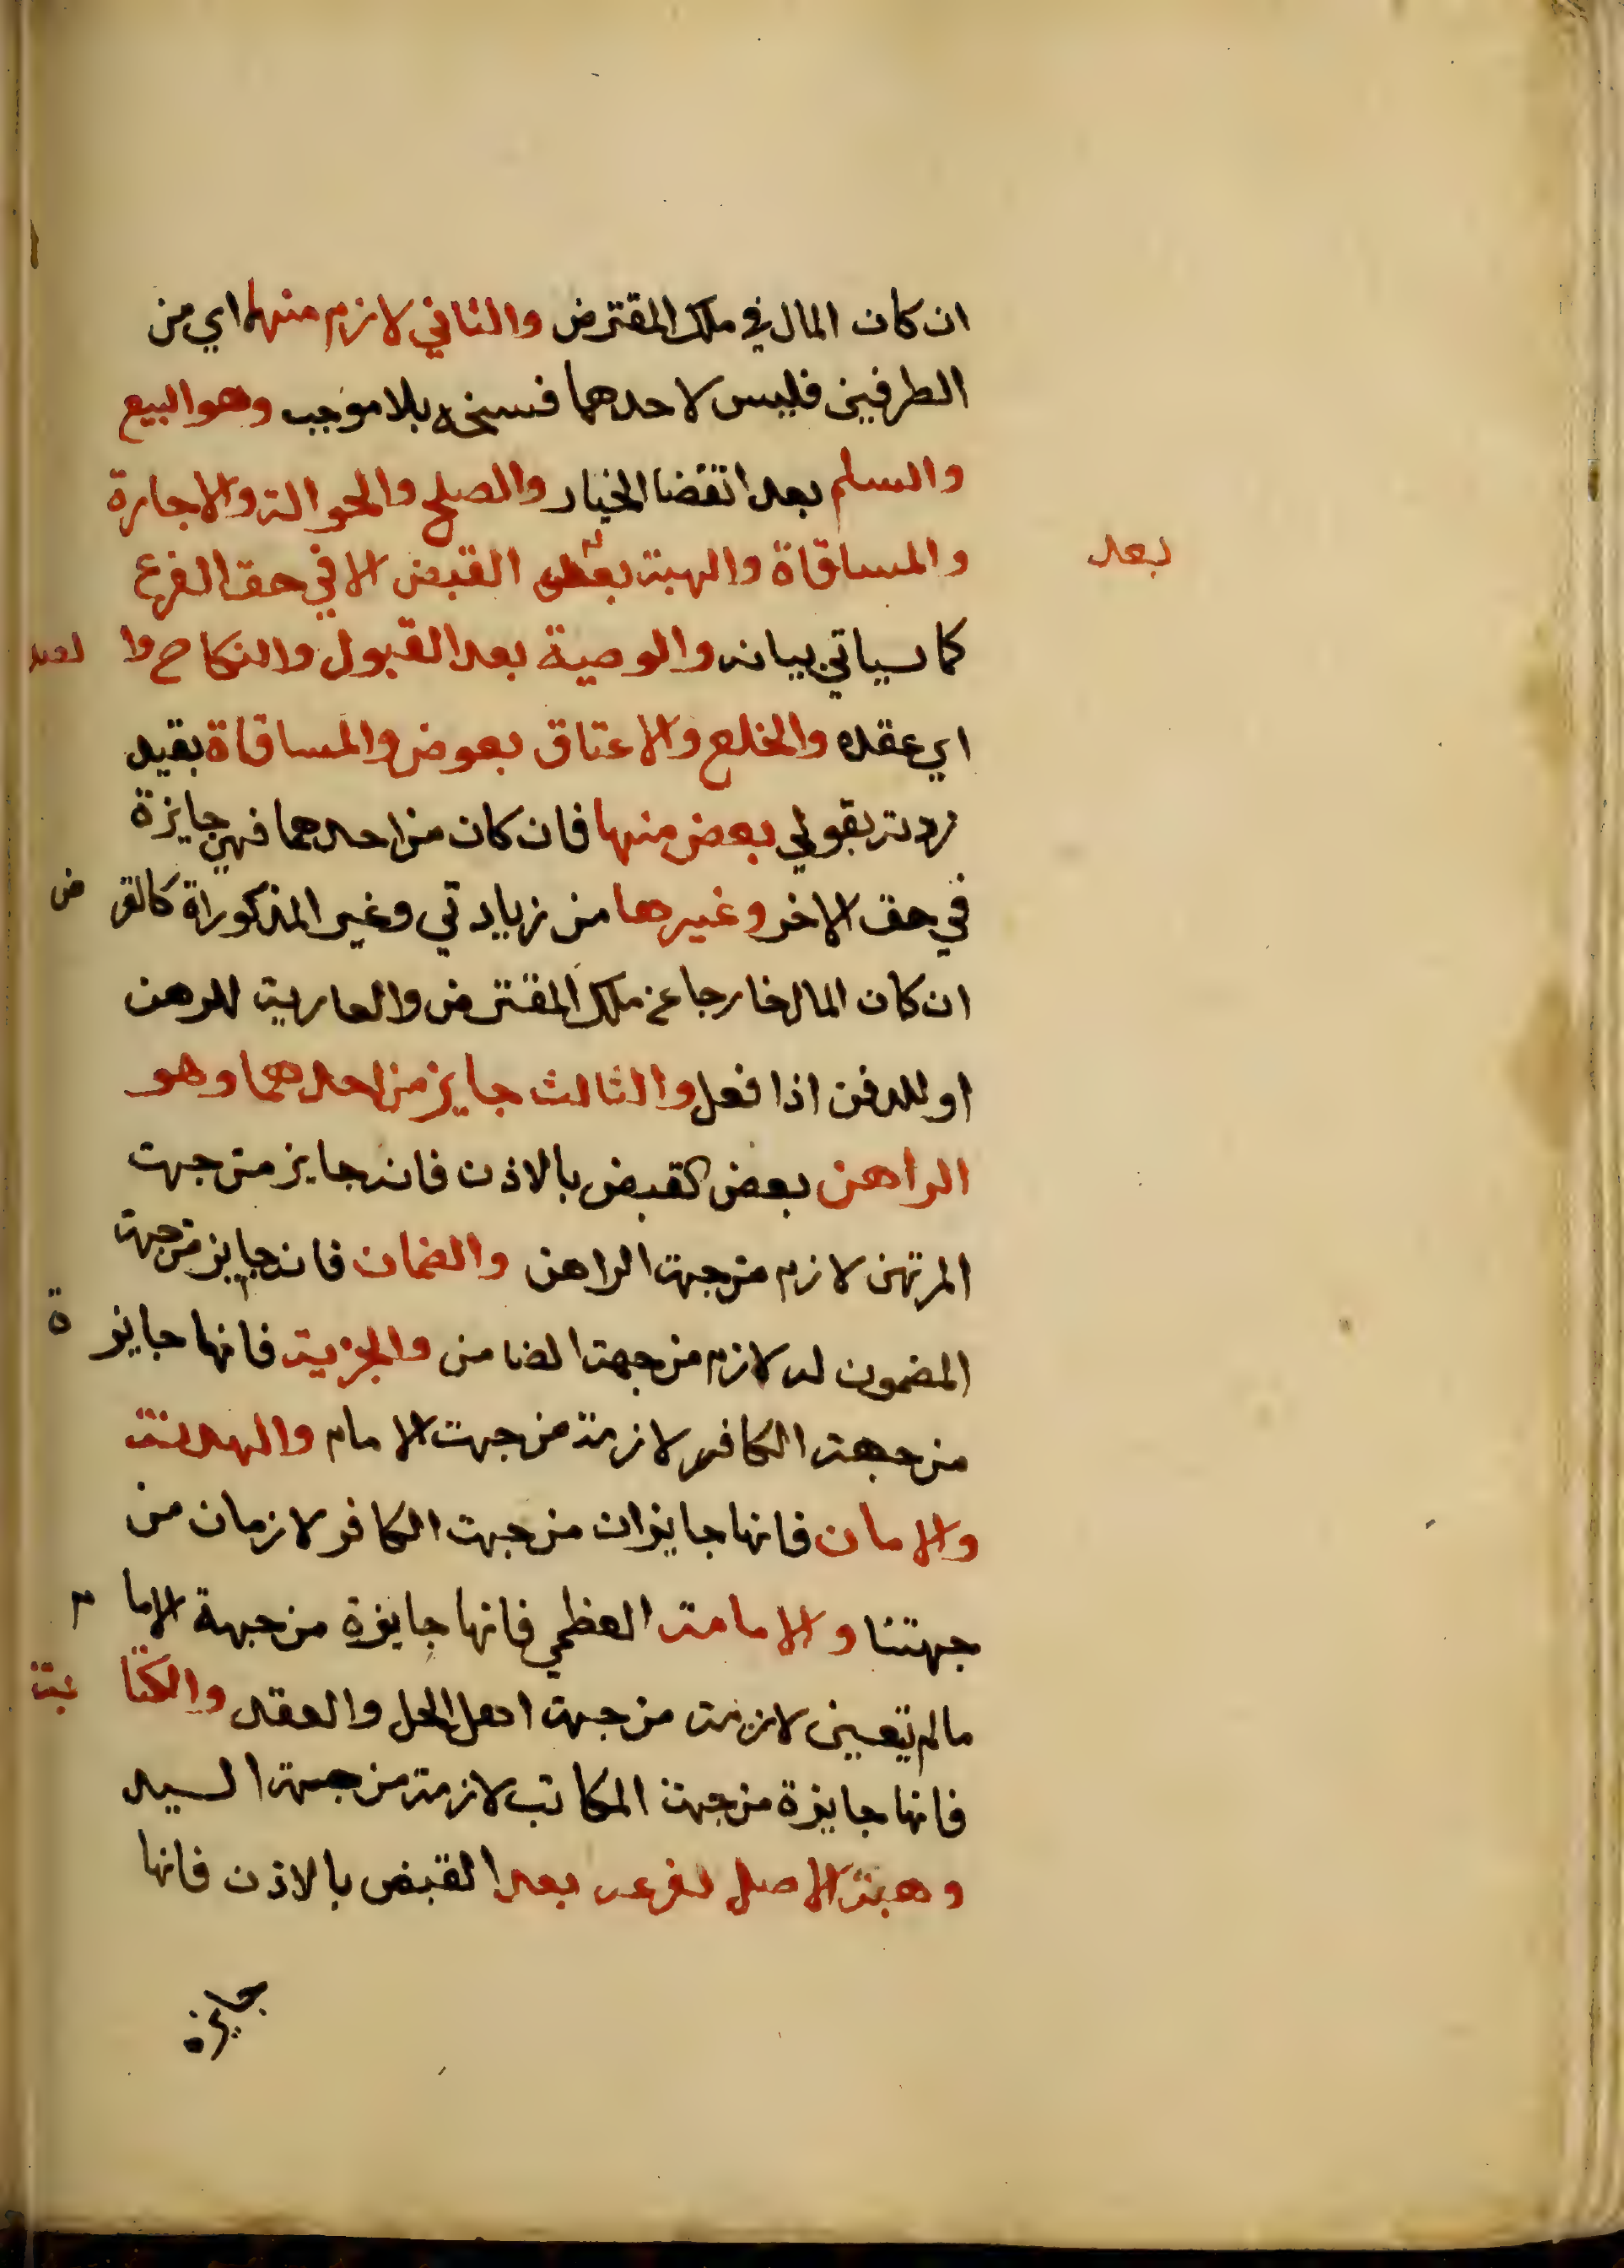 ان كان المال في ملك المقترض والثاني لازم منهما اي من
الطرفين فليس لاحدهما فسخه بلا موجب وهو البيع
والسلم بعد انقضا الخيار والصلح والحوالة والاجارة
والمساقاة والهبة بعض القبض الا في حق الفرع
بعد
كما سياتي بيانه والوصية بعد القبول والنكاح وا لصد
اي عقده والخلع والاعتاق بعوض والمساقاة بقيد
زدته بقولي بعض منها فان كان من احدهما فهي جايزة
في حق الاخر وغيرها من زيادتي وغير المذكوراة كالقر ض
ان كان المال خارجا عن ملك المقترض والعارية للرهن
او للدفن اذا فعل والثالث جايز من احدهما وهو
الراهن بعض القبض بالاذن فانه جايز من جهت
المرتهن لازم من جهة الراهن والضمان فانه جايز من جهت
المضمون له لازم من جهة الضامن والجزية فانها جايز ة
من جهة الكافر لازمة من جهت الامام والهدنة
والامان فانها جايزان من جهت الكافر لازمان من
جهتنا والامامة العظمي فانها جايزة من جهة الاما م
مالم تتعين لازمة من جهت اهل الحل والعقد والكتا بة
فانها جايزة من جهة المكاتب لازمة من جهة السيد
وهبة الاصل لفرعه بعد القبض بالاذن فانها
جايزة